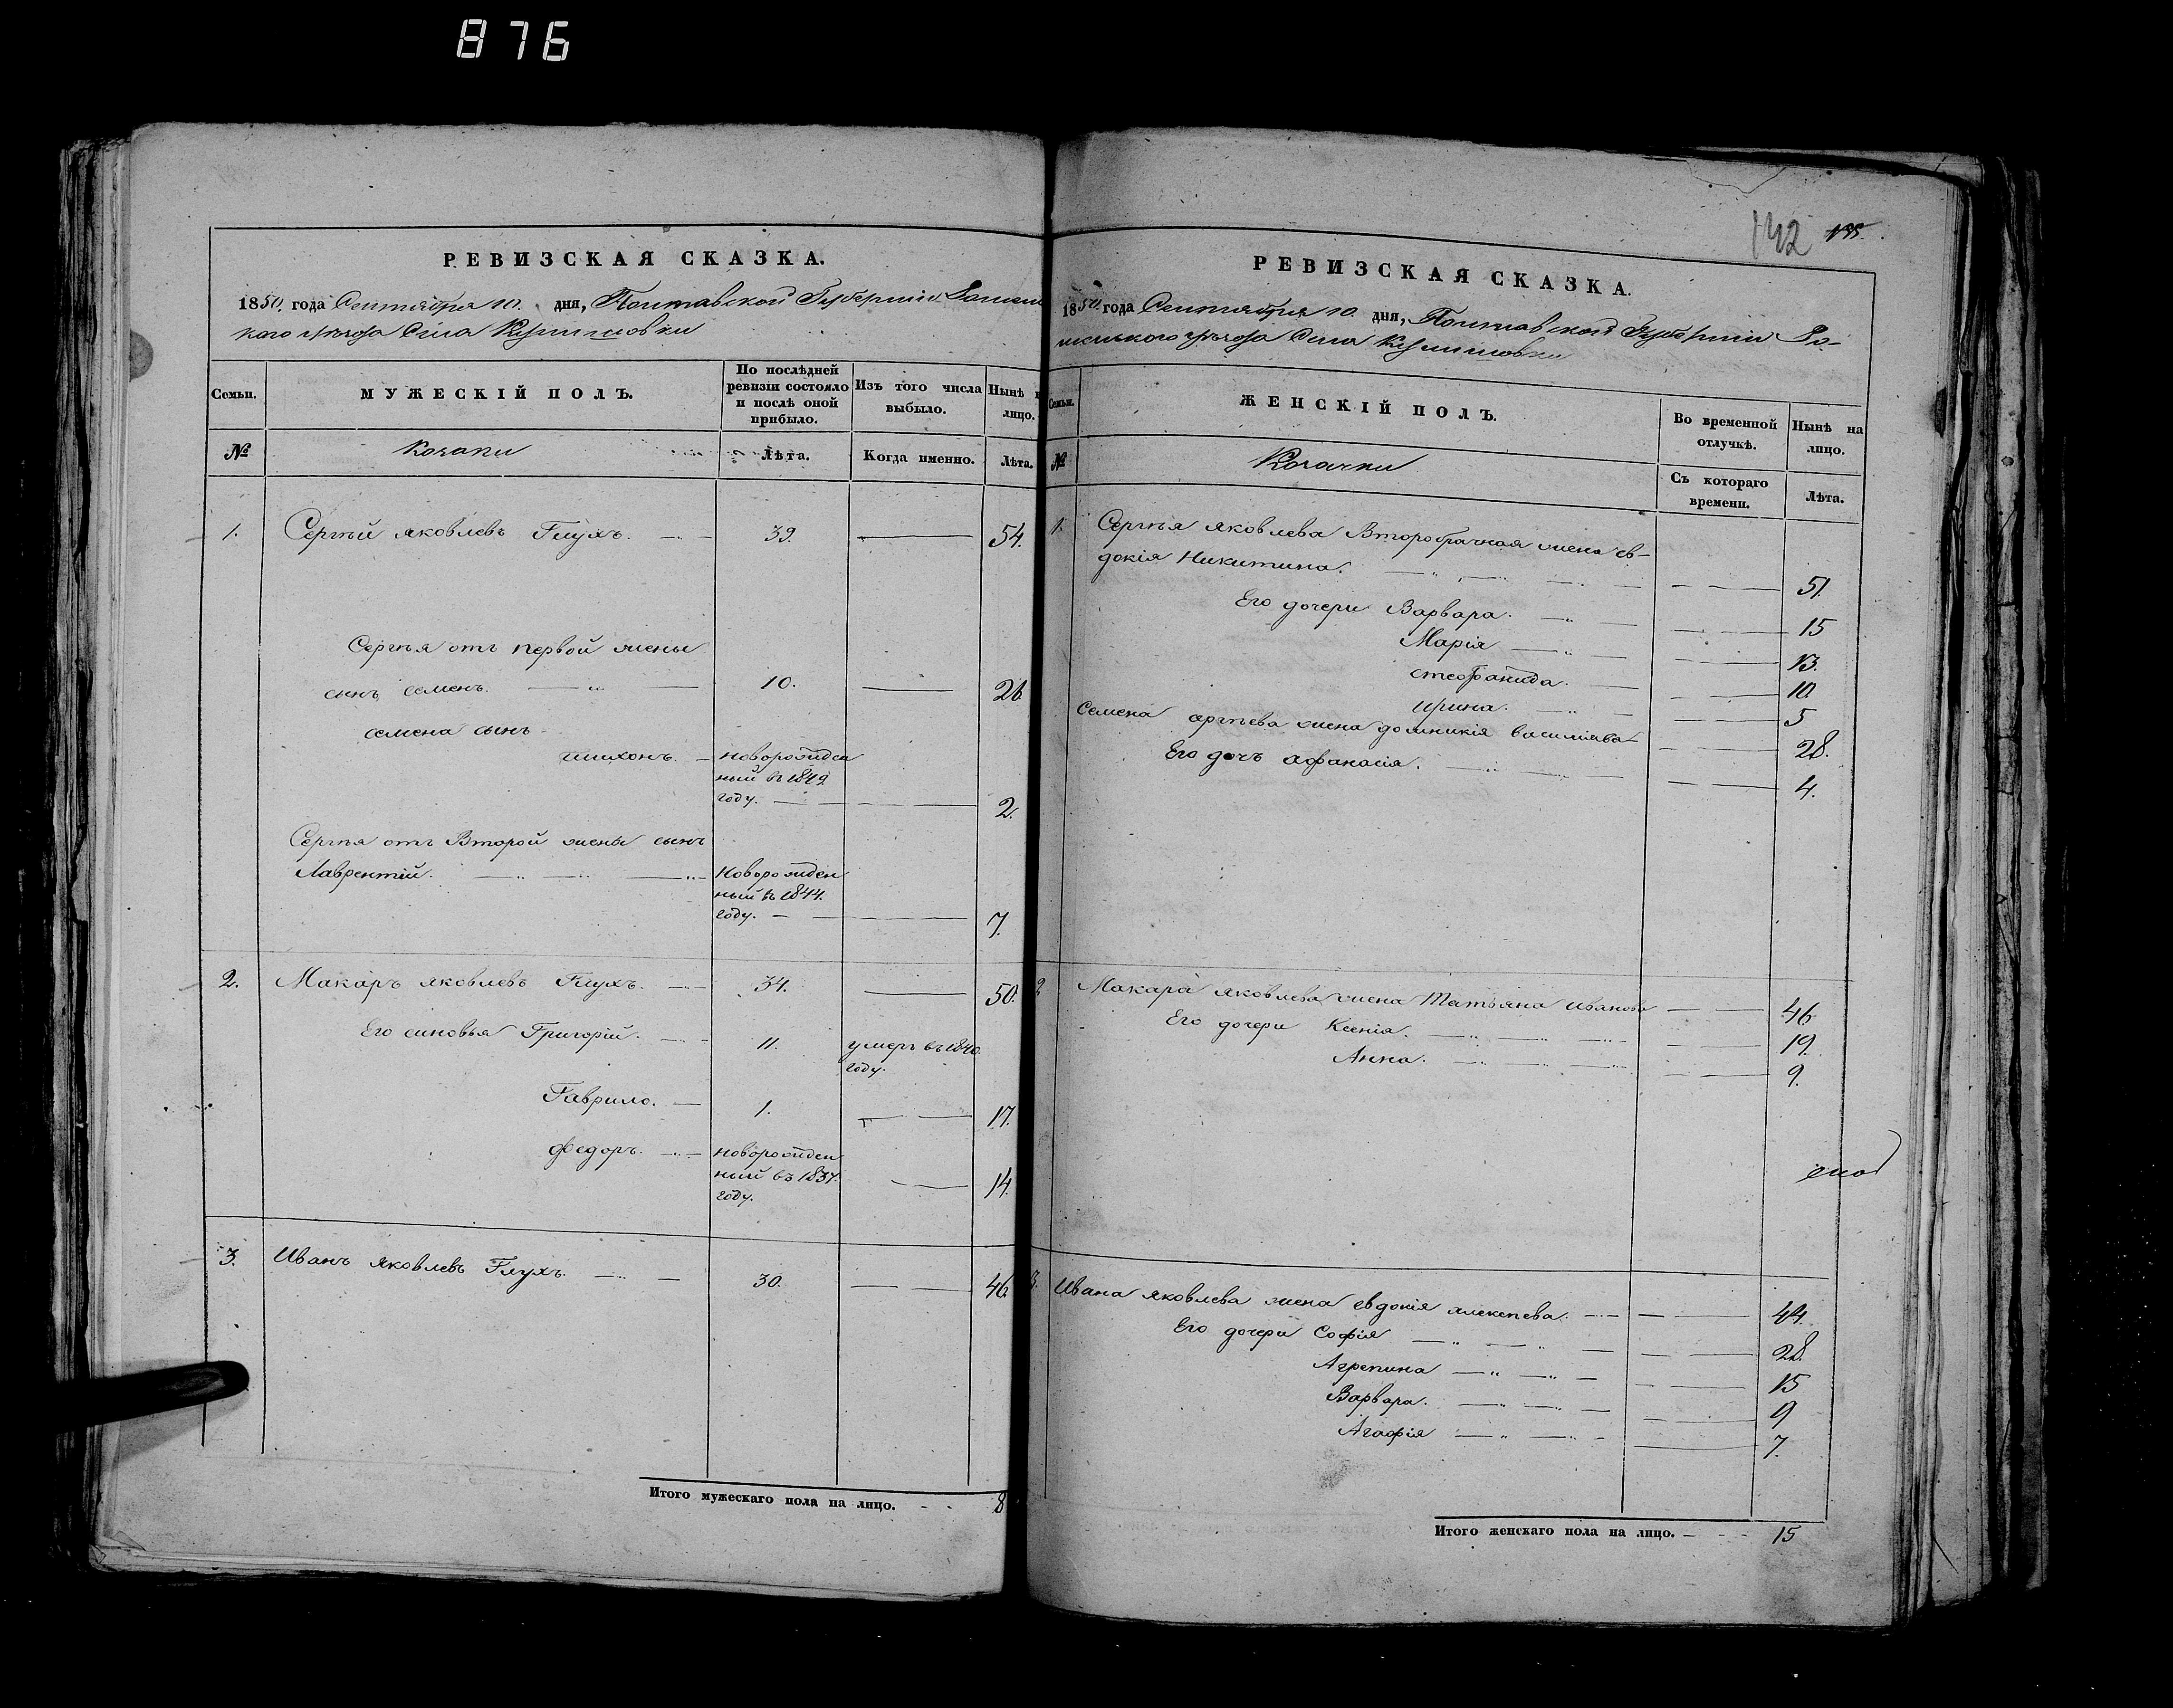 876
РЕВИЗСКАЯ СКАЗКА.
1850, года Сентября 10. дня, Полтавской Губернiи Ромен
кого уѣзда Села
МУЖЕСКІЙ ПОЛЪ.
Семьи.
По послѣдней ревизіи состояло и послѣ оной прибыло.
Изъ того числа выбыло.
Нынѣ лицо.
№
Козаки
Лѣта.
Когда именно.
Лѣта.
1. Сергѣй яковлевъ Глухъ. 39. 54.
Сергѣя отъ первой жены
сынъ семенъ. 10. 26
семена сынъ
тихонъ. новорожден
ный въ 1849
году. 2.
Сергѣя отъ Второй жены сынъ
Лаврентiй. Новорожден
ный въ 1844.
году. 7.
2. Макаръ яковлевъ Глухъ. 34. 50.
Его сыновья Григорiй. 11. умеръ въ 1840.
году.
Гаврило. 1. 17.
федоръ. новорожден
ный въ 1837.
году. 14.
3. Иванъ яковлевъ Глухъ. 30. 46
Итого мужескаго пола на лицо. 8
142
РЕВИЗСКАЯ СКАЗКА.
1850 года Сентября 10. дня, Полтавской Губернiи Ро-
менского уѣзда Села
Семьи.
ЖЕНСКІЙ ПОЛЪ.
Во временной отлучкѣ.
Нынѣ на лицо.
№
Козачки
Съ котораго времени.
Лѣта.
1. Сергѣя яковлева Второбрачная жена ев-
докiя Никитина. 51.
Его дочери Варвара. 15
Марiя 13.
стефанида. 10
ирина. 5
Семена сергѣева жена домникiя василiева 28.
Его дочь афанасiя. 4.
2 Макара яковлева жена Татьяна иванова 46
Его дочери Ксенiя. 19.
Анна. 9.
3. Ивана яковлева жена евдокiя алексѣева. 44.
Его дочери Софiя 28.
Агрепина 15
Варвара. 9
Агафiя 7.
Итого женскаго пола на лицо. 15